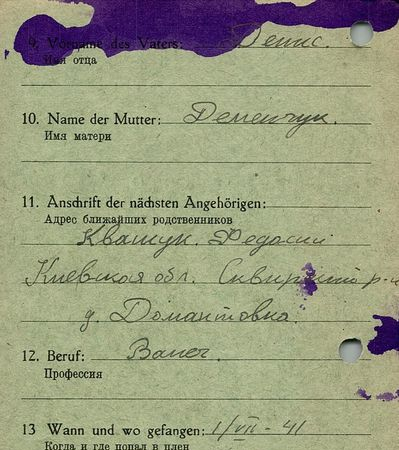 9. Vorname des Vaters: Денис.
Имя отца
10. Name der Mutter: Деменчук.
Имя матери
11. Anschrift der nächsten Angehörigen:
Адрес ближайших родственников
Квашук Федосий
Киевская обл. Сквирский р-н
д. Домантовка
12. Beruf:
Профессия
13 Wann und wo gefangen: 1/VII-41
Когда и где попал в плен